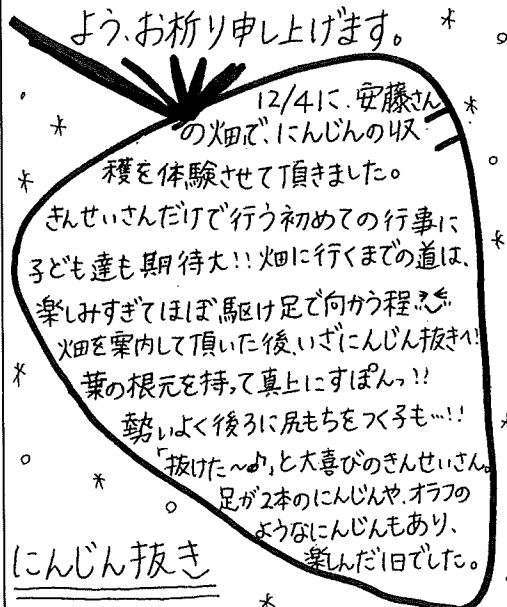 よう、お祈り申し上げます。
12/4に、安藤さん
の畑で、にんじんの収
穫を体験させて頂きました。
きんせいさんだけで行う初めての行事に
子ども達も期待大!!畑に行くまでの道は、
楽しみすぎてほぼ駆け足で向かう程
畑を案内して頂いた後、いざにんじん抜きへ!
葉の根元を持って真上にすぽんっ!!
勢いよく後ろに尻もちをつく子も…!!
「抜けた～♪」と大喜びのきんせいさん。
足が2本のにんじんや、オラフの
ようなにんじんもあり、
楽しんだ1日でした。
にんじん抜き